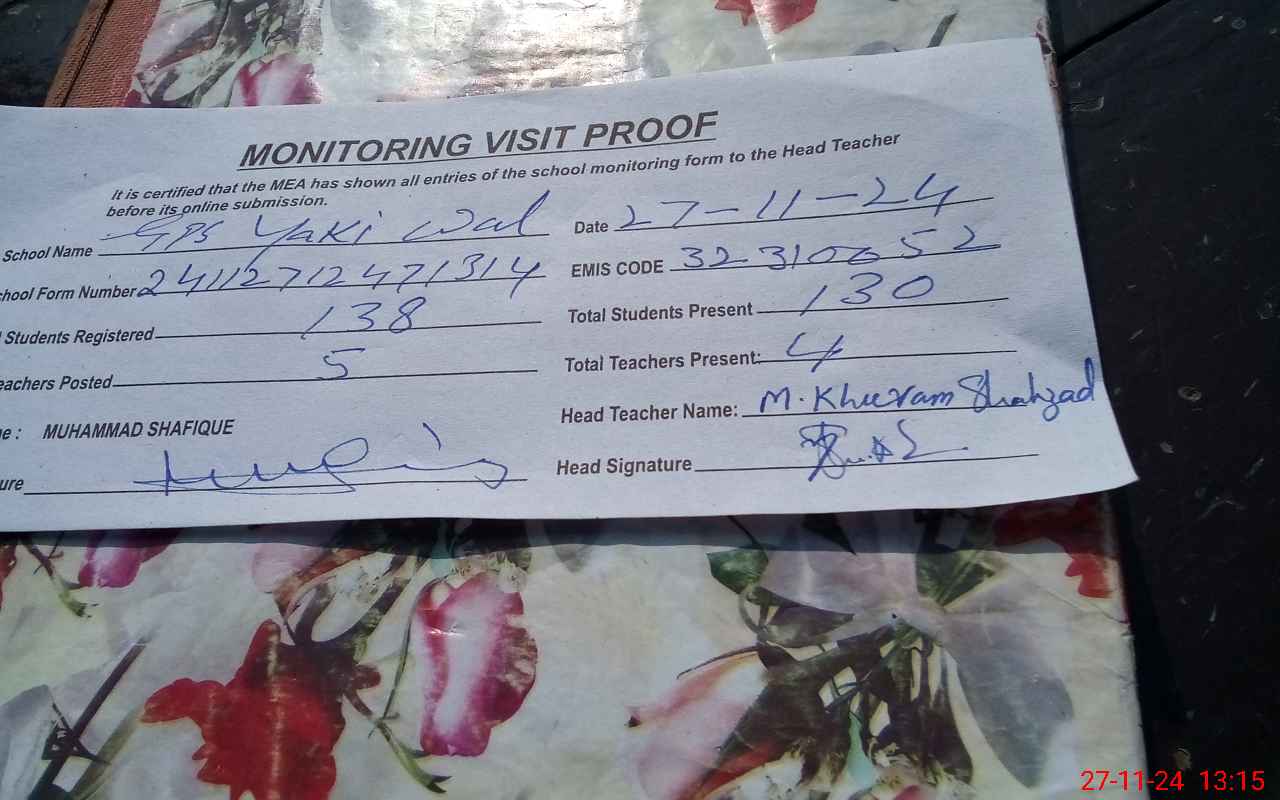 MONITORING VISIT PROOF
It is certified that the MEA has shown all entries of the school monitoring form to the Head Teacher
before its online submission.
School Name GPS Yaki Wal Date 27-11-24
chool Form Number 24112712471314 EMIS CODE 32310052
Students Registered 138 Total Students Present 130
eachers Posted 5 Total Teachers Present: 4
Head Teacher Name: M. Khurram Shahzad
e : MUHAMMAD SHAFIQUE
ure Head Signature
27-11-24 13:15